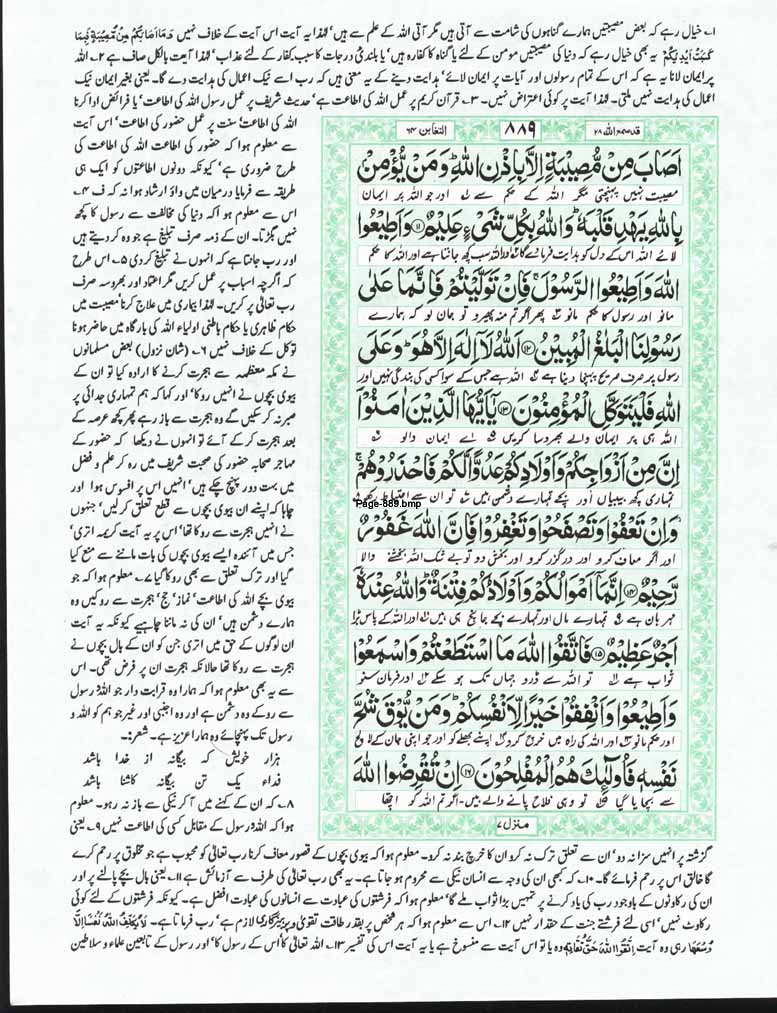 ۱۔ خیال رہے کہ بعض مصیبتیں ہمارے گناہوں کی شامت سے آتی ہیں مگر آتی اللہ کے علم سے ہیں، لہٰذا یہ آیت اس آیت کے خلاف نہیں وَمَآ اَصَابَكُمْ مِّنْ مُّصِيْبَةٍ فَبِمَا
كَسَبَتْ اَيْدِيْكُمْ یہ بھی خیال رہے کہ دنیا کی مصیبتیں مومن کے لئے یا گناہ کا کفارہ ہیں، یا بلندی درجات کا سبب، کفار کے لئے عذاب، لہٰذا آیت بالکل صاف ہے ۲۔ اللہ
پر ایمان لانا یہ ہے کہ اس کے تمام رسولوں اور آیات پر ایمان لائے، ہدایت دینے کے یہ معنی ہیں کہ رب اسے نیک اعمال کی ہدایت دے گا۔ یعنی بغیر ایمان نیک
اعمال کی ہدایت نہیں ملتی۔ لہٰذا آیت پر کوئی اعتراض نہیں۔ ۳۔ قرآن کریم پر عمل اللہ کی اطاعت ہے، حدیث شریف پر عمل رسول اللہ کی اطاعت، یا فرائض ادا کرنا
اللہ کی اطاعت، سنت پر عمل حضور کی اطاعت، اس آیت
سے معلوم ہوا کہ حضور کی اطاعت اللہ کی اطاعت کی
طرح ضروری ہے، کیونکہ دونوں اطاعتوں کو ایک ہی
طریقہ سے فرمایا درمیان میں واؤ ارشاد ہوا نہ کہ ف ۴۔
اس سے معلوم ہوا کہ دنیا کی مخالفت سے رسول کا کچھ
نہیں بگڑتا۔ ان کے ذمہ صرف تبلیغ ہے جو وہ کر دیتے ہیں
اور رب جانتا ہے کہ انہوں نے تبلیغ کر دی ۵۔ اس طرح
کہ اگرچہ اسباب پر عمل کریں مگر اعتماد اور بھروسہ صرف
رب تعالیٰ پر کریں۔ لہٰذا بیماری میں علاج کرنا، مصیبت میں
حکام ظاہری یا حکام باطنی اولیاء اللہ کی بارگاہ میں حاضر ہونا
توکل کے خلاف نہیں ۶۔ (شان نزول) بعض مسلمانوں
نے مکہ معظمہ سے ہجرت کرنے کا ارادہ کیا تو ان کے
بیوی بچوں نے انہیں روکا، اور کہا کہ ہم تمہاری جدائی پر
صبر نہ کر سکیں گے وہ ہجرت سے باز رہے پھر کچھ عرصہ کے
بعد ہجرت کر کے آئے تو انہوں نے دیکھا کہ حضور کے
مہاجر صحابہ حضور کی صحبت شریف میں رہ کر علم و فضل
میں بہت دور پہنچ چکے ہیں، انہیں اس پر افسوس ہوا اور
چاہا کہ اپنے ان بیوی بچوں سے قطع تعلق کر لیں، جنہوں
نے انہیں ہجرت سے روکا تھا، اس پر یہ آیت کریمہ اتری،
جس میں آئندہ ایسے بیوی بچوں کی بات ماننے سے منع کیا
گیا اور ترک تعلق سے بھی روکا گیا ۷۔ معلوم ہوا کہ جو
بیوی بچے اللہ کی اطاعت، نماز، حج، ہجرت سے روکیں وہ
ہمارے دشمن ہیں، ان کی نہ ماننا چاہیے کیونکہ یہ آیت
ان لوگوں کے حق میں اتری جن کو ان کے بال بچوں نے
ہجرت سے روکا تھا حالانکہ ہجرت ان پر فرض تھی۔ اس
سے یہ بھی معلوم ہوا کہ ہمارا وہ قرابت دار جو اللہ رسول
سے روکے وہ دشمن ہے اور وہ اجنبی اور غیر جو ہم کو اللہ و
رسول تک پہنچائے وہ ہمارا عزیز ہے۔ شعر:۔
ہزار خویش کہ بیگانہ از خدا باشد
فداء یک تن بیگانہ کاشنا باشد
۸۔ کہ ان کے کہنے میں آ کر نیکی سے باز نہ رہو۔ معلوم
ہوا کہ اللہ رسول کے مقابل کسی کی اطاعت نہیں ۹۔ یعنی
قدسمع اللہ ۲۸
۸۸۹
التغابن ۶۴
اَصَابَ مِنْ مُّصِيْبَةٍ اِلَّا بِاِذْنِ اللّٰهِ ؕ وَمَنْ يُّؤْمِنْ
مصیبت نہیں پہنچتی مگر اللہ کے حکم سے ۱ اور جو اللہ پر ایمان
بِاللّٰهِ يَهْدِ قَلْبَهٗ ؕ وَاللّٰهُ بِكُلِّ شَيْءٍ عَلِيْمٌ ۝۱۱ وَاَطِيْعُوا
لائے اللہ اس کے دل کو ہدایت فرمائے گا ۲ اور اللہ سب کچھ جانتا ہے اور اللہ کا حکم
اللّٰهَ وَاَطِيْعُوا الرَّسُوْلَ ۚ فَاِنْ تَوَلَّيْتُمْ فَاِنَّمَا عَلٰى
مانو اور رسول کا حکم مانو ۳ پھر اگر تم منہ پھیرو تو جان لو کہ ہمارے
رَسُوْلِنَا الْبَلٰغُ الْمُبِيْنُ ۝۱۲ اَللّٰهُ لَاۤ اِلٰهَ اِلَّا هُوَ ؕ وَعَلَى
رسول پر صرف صریح پہنچا دینا ہے ۴ اللہ ہے جس کے سوا کسی کی بندگی نہیں اور
اللّٰهِ فَلْيَتَوَكَّلِ الْمُؤْمِنُوْنَ ۝۱۳ يٰۤاَيُّهَا الَّذِيْنَ اٰمَنُوْۤا
اللہ ہی پر ایمان والے بھروسا کریں ۵ اے ایمان والو ۶
اِنَّ مِنْ اَزْوَاجِكُمْ وَاَوْلَادِكُمْ عَدُوًّا لَّكُمْ فَاحْذَرُوْهُمْ ۚ
تمہاری کچھ بیبیاں اور بچے تمہارے دشمن ہیں ۷ تو ان سے احتیاط رکھو ۸
Page-889.bmp
وَاِنْ تَعْفُوْا وَتَصْفَحُوْا وَتَغْفِرُوْا فَاِنَّ اللّٰهَ غَفُوْرٌ
اور اگر معاف کرو اور درگزر کرو اور بخش دو تو بے شک اللہ بخشنے والا
رَّحِيْمٌ ۝۱۴ اِنَّمَاۤ اَمْوَالُكُمْ وَاَوْلَادُكُمْ فِتْنَةٌ ؕ وَاللّٰهُ عِنْدَهٗۤ
مہربان ہے ۹ تمہارے مال اور تمہارے بچے جانچ ہی ہیں ۱۰ اور اللہ کے پاس بڑا
اَجْرٌ عَظِيْمٌ ۝۱۵ فَاتَّقُوا اللّٰهَ مَا اسْتَطَعْتُمْ وَاسْمَعُوْا
ثواب ہے ۱۱ تو اللہ سے ڈرو جہاں تک ہو سکے ۱۲ اور فرمان سنو
وَاَطِيْعُوْا وَاَنْفِقُوْا خَيْرًا لِّاَنْفُسِكُمْ ؕ وَمَنْ يُّوْقَ شُحَّ
اور حکم مانو ۱۳ اور اللہ کی راہ میں خرچ کرو اپنے بھلے کو اور جو اپنی جان کے لالچ
نَفْسِهٖ فَاُولٰٓئِكَ هُمُ الْمُفْلِحُوْنَ ۝۱۶ اِنْ تُقْرِضُوا اللّٰهَ
سے بچایا گیا تو وہی فلاح پانے والے ہیں۔ اگر تم اللہ کو اچھا
منزل ۷
گزشتہ پر انہیں سزا نہ دو، ان سے تعلق ترک نہ کرو ان کا خرچ بند نہ کرو۔ معلوم ہوا کہ بیوی بچوں کے قصور معاف کرنا رب تعالیٰ کو محبوب ہے جو مخلوق پر رحم کرے
گا خالق اس پر رحم فرمائے گا۔ ۱۰۔ کہ کبھی ان کی وجہ سے انسان نیکی سے محروم ہو جاتا ہے۔ یہ بھی رب تعالیٰ کی طرف سے آزمائش ہے ۱۱۔ یعنی بال بچے پالنے پر اور
ان کی رکاوٹوں کے باوجود رب کی یاد کرنے پر تمہیں بڑا ثواب ملے گا، معلوم ہوا کہ فرشتوں کی عبادت سے انسانوں کی عبادت افضل ہے۔ کیونکہ فرشتوں کے لئے کوئی
رکاوٹ نہیں، اسی لئے فرشتے جنت کے حقدار نہیں ۱۲۔ اس سے معلوم ہوا کہ ہر شخص پر بقدر طاقت تقویٰ و پرہیزگاری لازم ہے، رب فرماتا ہے۔ لَا يُكَلِّفُ اللّٰهُ نَفْسًا اِلَّا
وُسْعَهَا رہی وہ آیت اِتَّقُوا اللّٰهَ حَقَّ تُقٰتِهٖ وہ یا تو اس آیت سے منسوخ ہے یا یہ آیت اس کی تفسیر ۱۳۔ اللہ تعالیٰ کا، اس کے رسول کا، اور رسول کے تابعین علماء و سلاطین